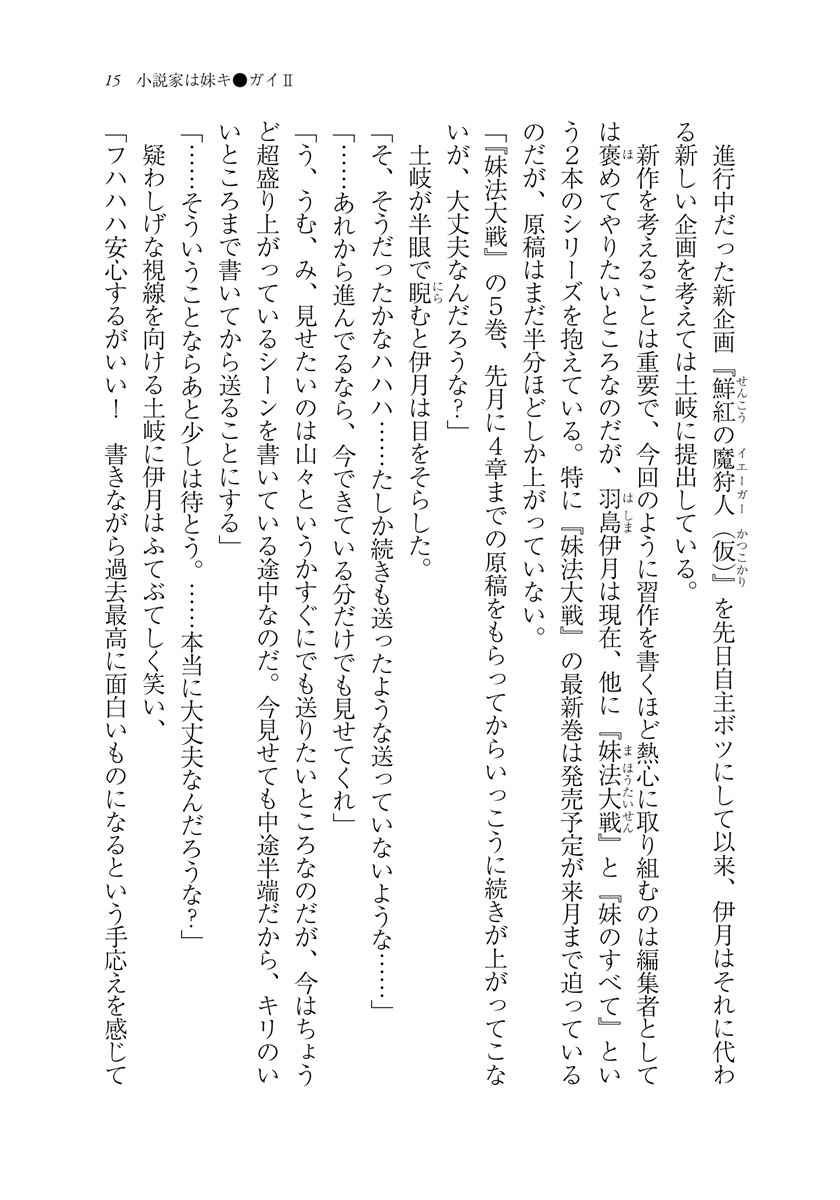 15 小説家は妹キ●ガイⅡ
　進行中だった新企画『鮮紅の魔狩人（仮）』を先日自主ボツにして以来、伊月はそれに代わ
る新しい企画を考えては土岐に提出している。
　新作を考えることは重要で、今回のように習作を書くほど熱心に取り組むのは編集者として
は褒めてやりたいところなのだが、羽島伊月は現在、他に『妹法大戦』と『妹のすべて』とい
う２本のシリーズを抱えている。特に『妹法大戦』の最新巻は発売予定が来月まで迫っている
のだが、原稿はまだ半分ほどしか上がっていない。
「『妹法大戦』の５巻、先月に４章までの原稿をもらってからいっこうに続きが上がってこな
いが、大丈夫なんだろうな？」
　土岐が半眼で睨むと伊月は目をそらした。
「そ、そうだったかなハハハ……たしか続きも送ったような送っていないような……」
「……あれから進んでるなら、今できている分だけでも見せてくれ」
「う、うむ、み、見せたいのは山々というかすぐにでも送りたいところなのだが、今はちょう
ど超盛り上がっているシーンを書いている途中なのだ。今見せても中途半端だから、キリのい
いところまで書いてから送ることにする」
「……そういうことならあと少しは待とう。……本当に大丈夫なんだろうな？」
　疑わしげな視線を向ける土岐に伊月はふてぶてしく笑い、
「フハハハ安心するがいい！　書きながら過去最高に面白いものになるという手応えを感じて
せんこう
イエーガー
かつこかり
ほ
はしま
まほうたいせん
にら